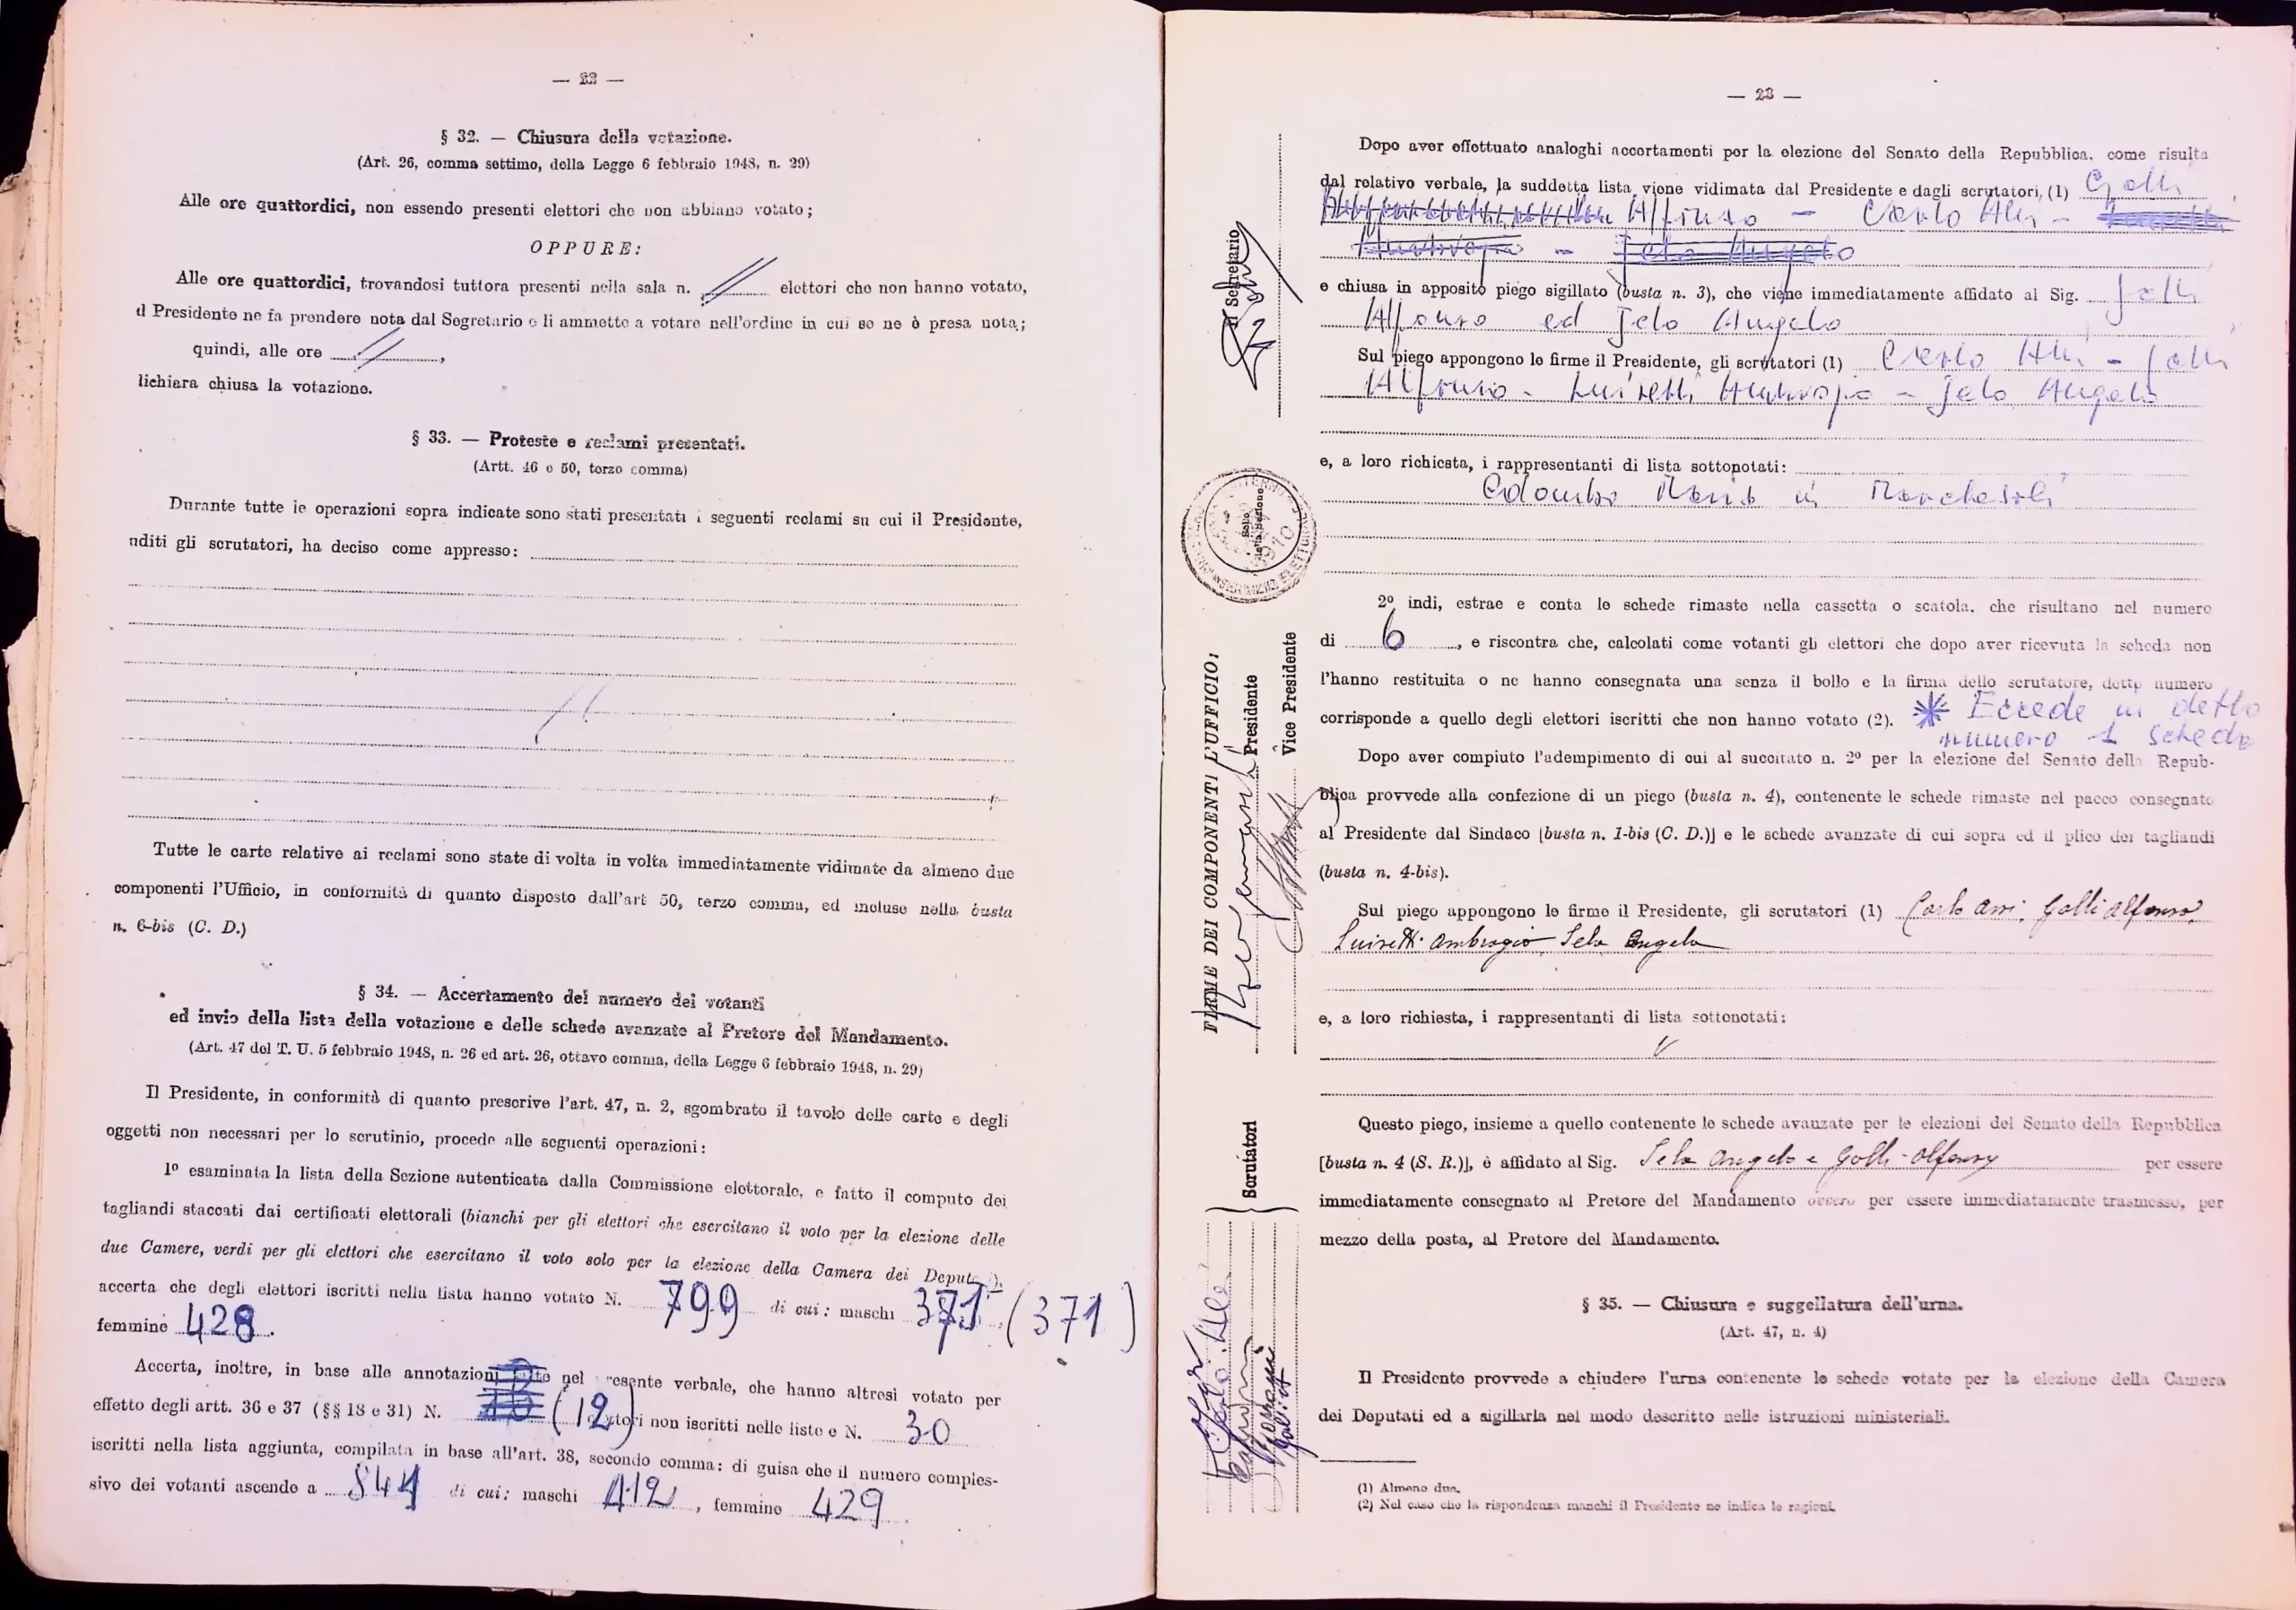 — 22 —
§ 32. — Chiusura della votazione.
(Art. 26, comma settimo, della Legge 6 febbraio 1948, n. 29)
Alle ore quattordici, non essendo presenti elettori che non abbiano votato;
OPPURE:
Alle ore quattordici, trovandosi tuttora presenti nella sala n. // elettori che non hanno votato,
il Presidente ne fa prendere nota dal Segretario e li ammette a votare nell'ordine in cui se ne è presa nota;
quindi, alle ore //,
lichiara chiusa la votazione.
§ 33. — Proteste e reclami presentati.
(Artt. 46 e 50, terzo comma)
Durante tutte le operazioni sopra indicate sono stati presentati i seguenti reclami su cui il Presidente,
uditi gli scrutatori, ha deciso come appresso:
//
Tutte le carte relative ai reclami sono state di volta in volta immediatamente vidimate da almeno due
componenti l'Ufficio, in conformità di quanto disposto dall'art 50, terzo comma, ed incluse nella busta
n. 6-bis (C. D.)
§ 34. — Accertamento del numero dei votanti
ed invio della lista della votazione e delle schede avanzate al Pretore del Mandamento.
(Art. 47 del T. U. 5 febbraio 1948, n. 26 ed art. 26, ottavo comma, della Legge 6 febbraio 1948, n. 29)
Il Presidente, in conformità di quanto prescrive l'art. 47, n. 2, sgombrato il tavolo delle carte e degli
oggetti non necessari per lo scrutinio, procede alle seguenti operazioni:
1º esaminata la lista della Sezione autenticata dalla Commissione elettorale, e fatto il computo dei
tagliandi staccati dai certificati elettorali (bianchi per gli elettori che esercitano il voto per la elezione delle
due Camere, verdi per gli elettori che esercitano il voto solo per la elezione della Camera dei Deput
accerta che degli elettori iscritti nella lista hanno votato N. 799 di cui: maschi 371 (371)
femmine 428.
Accerta, inoltre, in base alle annotazioni nel resente verbale, che hanno altresì votato per
effetto degli artt. 36 e 37 (§§ 18 e 31) N. (12) tori non iscritti nelle liste e N. 30
iscritti nella lista aggiunta, compilata in base all'art. 38, secondo comma: di guisa che il numero comples-
sivo dei votanti ascende a 841 di cui: maschi 412, femmine 429.
— 23 —
Dopo aver effettuato analoghi accertamenti per la elezione del Senato della Repubblica, come risulta
dal relativo verbale, la suddetta lista viene vidimata dal Presidente e dagli scrutatori, (1) Galli
Alfonso — Carlo —
— Jelo Angelo
e chiusa in apposito piego sigillato (busta n. 3), che viene immediatamente affidato al Sig. Galli
Alfonso ed Jelo Angelo
Sul piego appongono le firme il Presidente, gli scrutatori (1) Carlo — Galli
Alfonso - Luisetti Ambrogio - Jelo Angelo
e, a loro richiesta, i rappresentanti di lista sottonotati:
Colombo Maria in
2º indi, estrae e conta le schede rimaste nella cassetta o scatola, che risultano nel numero
di 6, e riscontra che, calcolati come votanti gli elettori che dopo aver ricevuta la scheda non
l'hanno restituita o ne hanno consegnata una senza il bollo e la firma dello scrutatore, detto numero
corrisponde a quello degli elettori iscritti che non hanno votato (2). * Eccede in detto
numero 1 scheda
Dopo aver compiuto l'adempimento di cui al succitato n. 2º per la elezione del Senato della Repub-
blica provvede alla confezione di un piego (busta n. 4), contenente le schede rimaste nel pacco consegnato
al Presidente dal Sindaco [busta n. 1-bis (C. D.)] e le schede avanzate di cui sopra ed il plico dei tagliandi
(busta n. 4-bis).
Sul piego appongono le firme il Presidente, gli scrutatori (1) Carlo Galli Alfonso,
Luisetti Ambrogio, Jelo Angelo
e, a loro richiesta, i rappresentanti di lista sottonotati:
Questo piego, insieme a quello contenente le schede avanzate per le elezioni del Senato della Repubblica
[busta n. 4 (S. R.)], è affidato al Sig. Jelo Angelo e Galli Alfonso per essere
immediatamente consegnato al Pretore del Mandamento ovvero per essere immediatamente trasmesso, per
mezzo della posta, al Pretore del Mandamento.
§ 35. — Chiusura e suggellatura dell'urna.
(Art. 47, n. 4)
Il Presidente provvede a chiudere l'urna contenente le schede votate per la elezione della Camera
dei Deputati ed a sigillarla nel modo descritto nelle istruzioni ministeriali.
(1) Almeno due.
(2) Nel caso che la rispondenza manchi il Presidente ne indica le ragioni.
Il Segretario
Bollo della Sezione
FIRME DEI COMPONENTI L'UFFICIO:
Presidente
Vice Presidente
Scrutatori